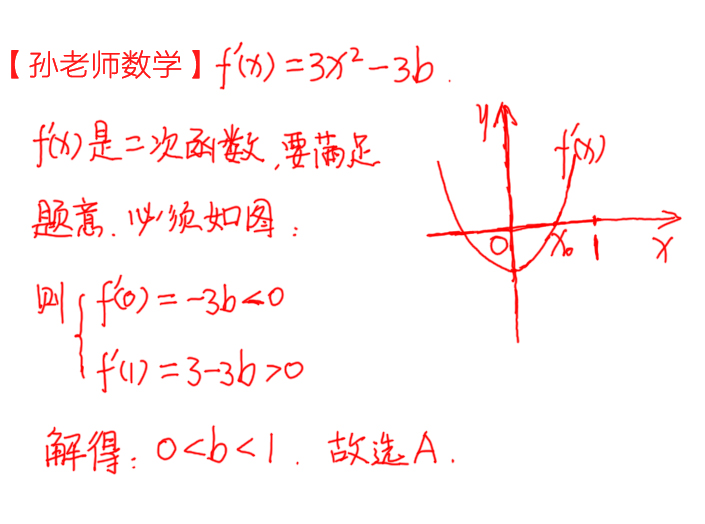 【孙老师数学】f'(x)=3x²-3b.
f'(x)是二次函数,要满足
题意.必须如图:
则{f'(0)=-3b<0
f'(1)=3-3b>0
解得:0<b<1.故选A.
y
f'(x)
0 x₀ 1 x